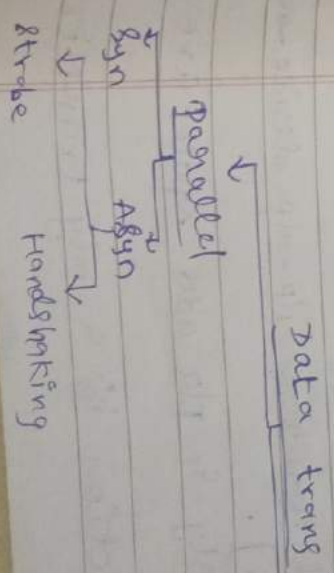 Data trans
Parallel
Syn Asyn
Strobe Handshaking